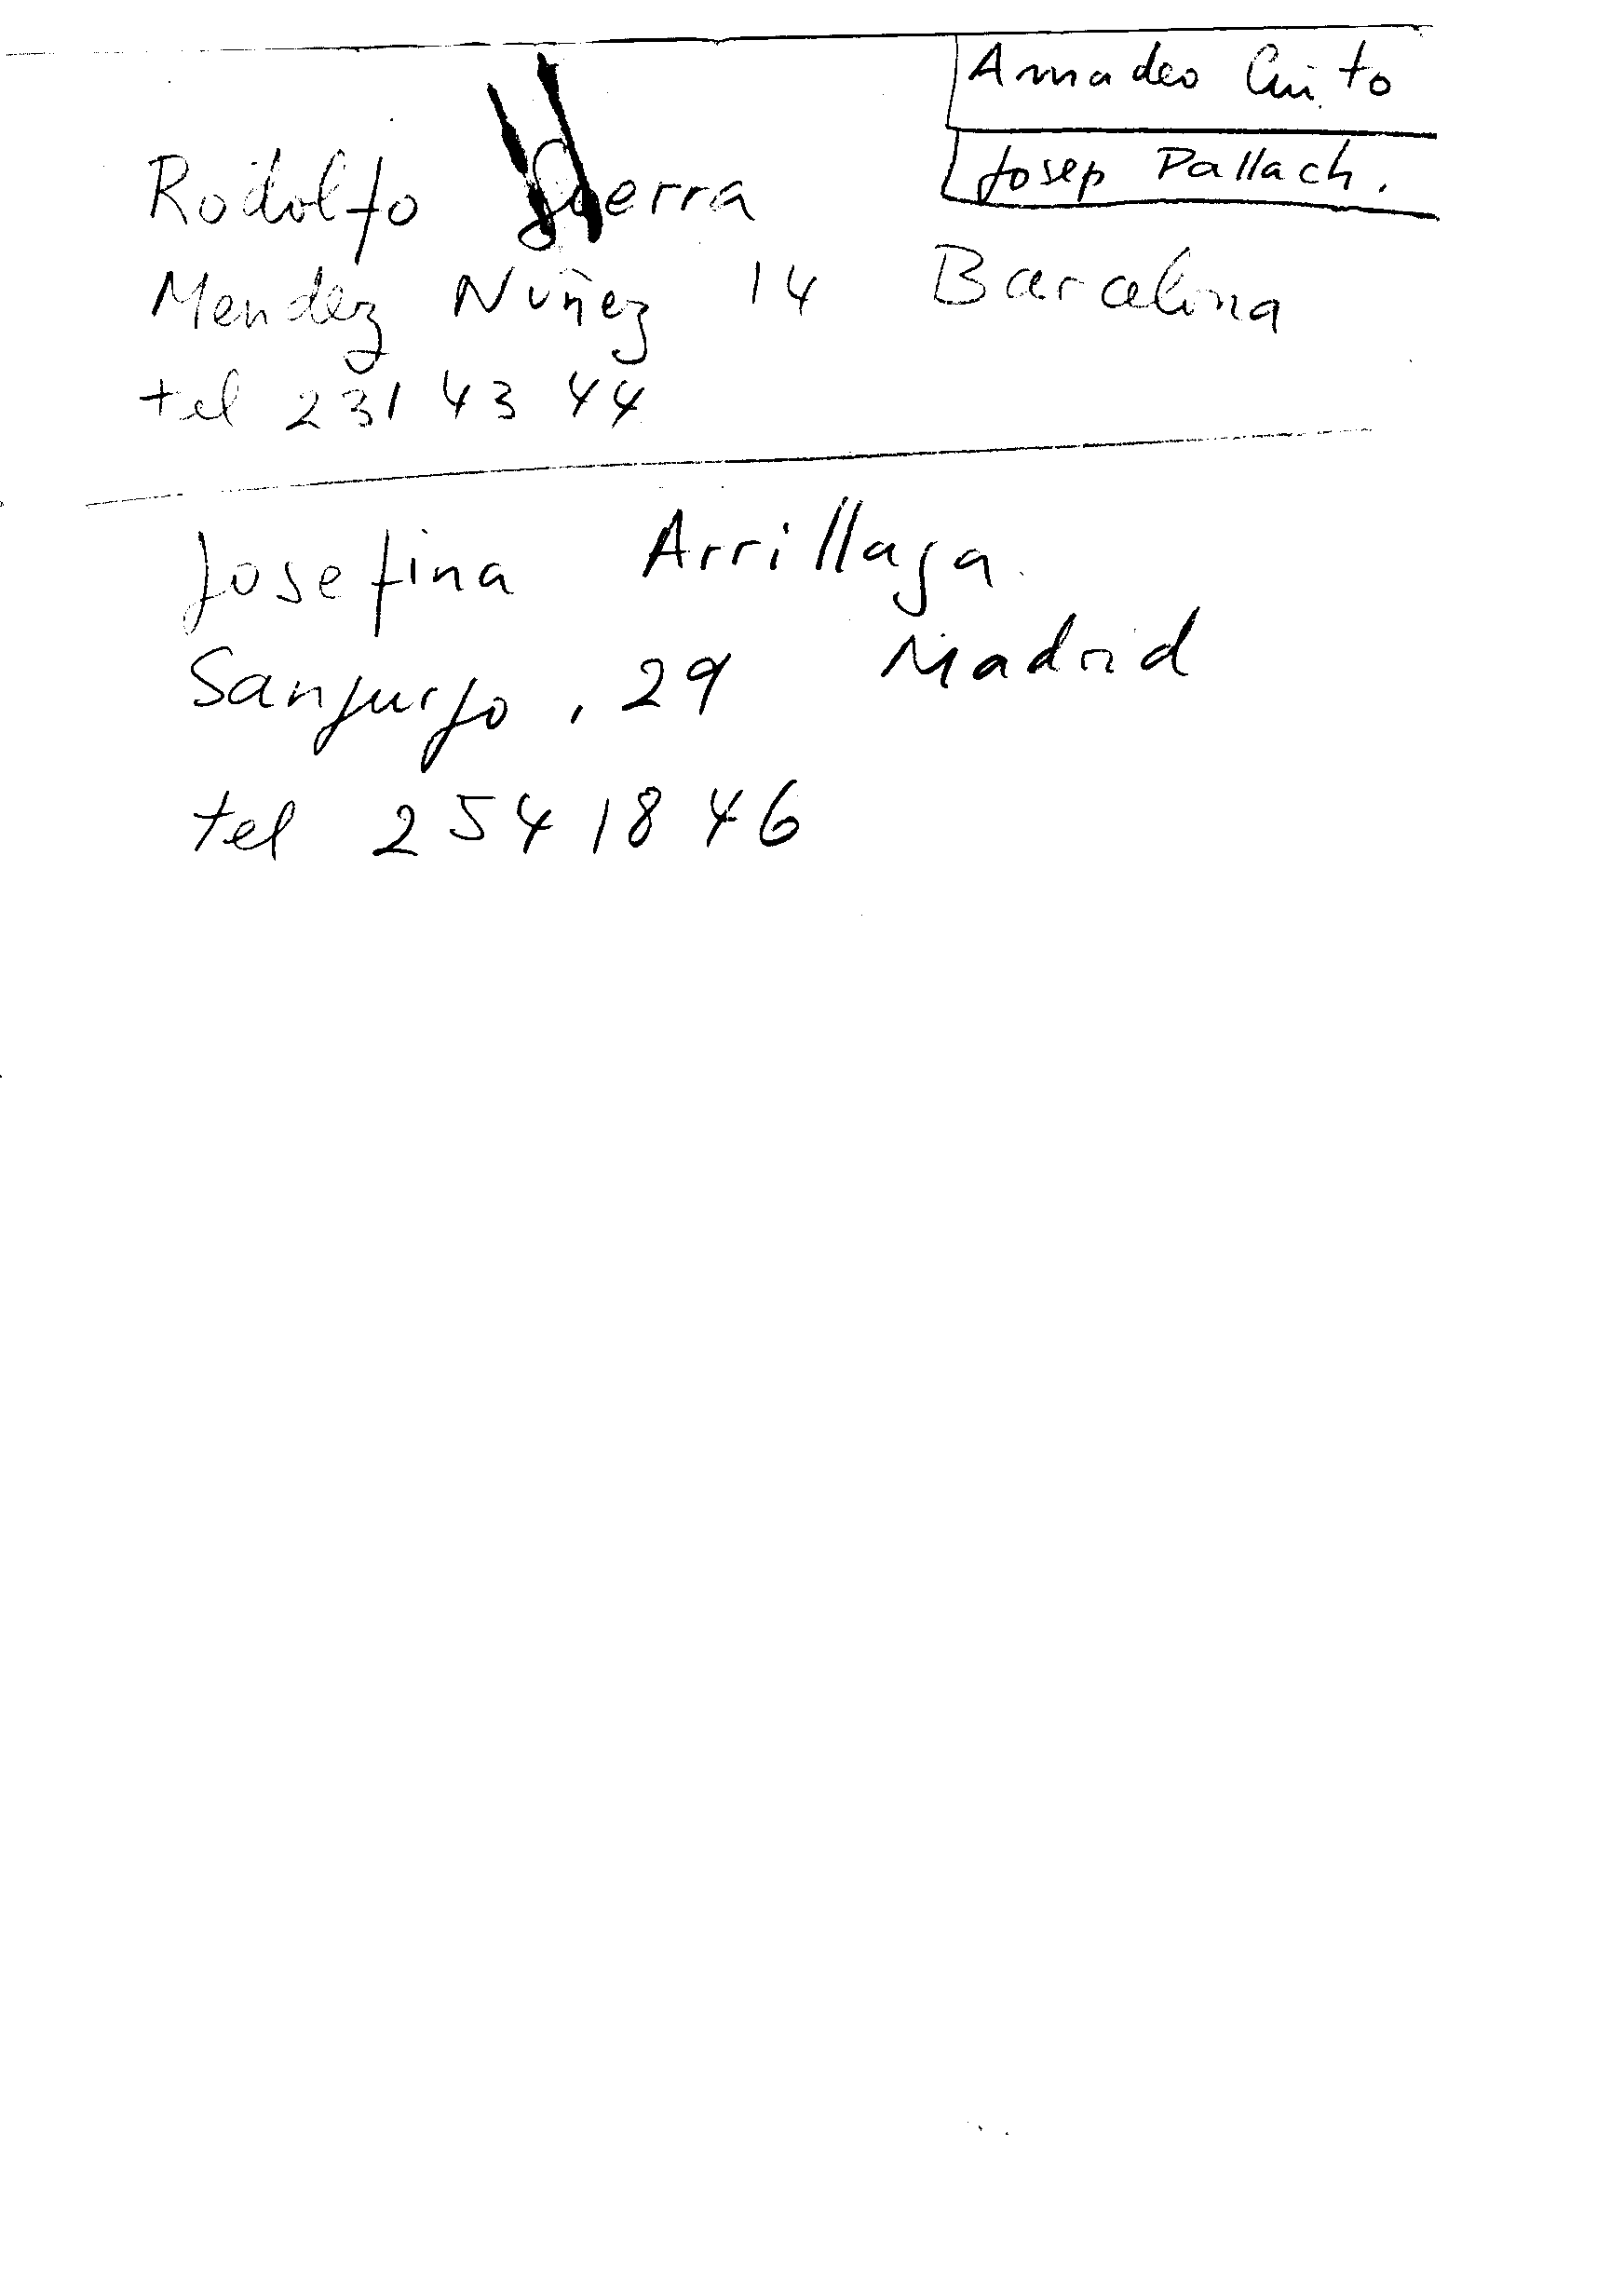 Amadeo Cuito
Josep Pallach.
Rodolfo Guerra
Mendez Nuñez 14 Barcelona
tel 231 43 44
Josefina Arrillaga.
Sanjurjo, 29 Madrid
tel 254 18 46